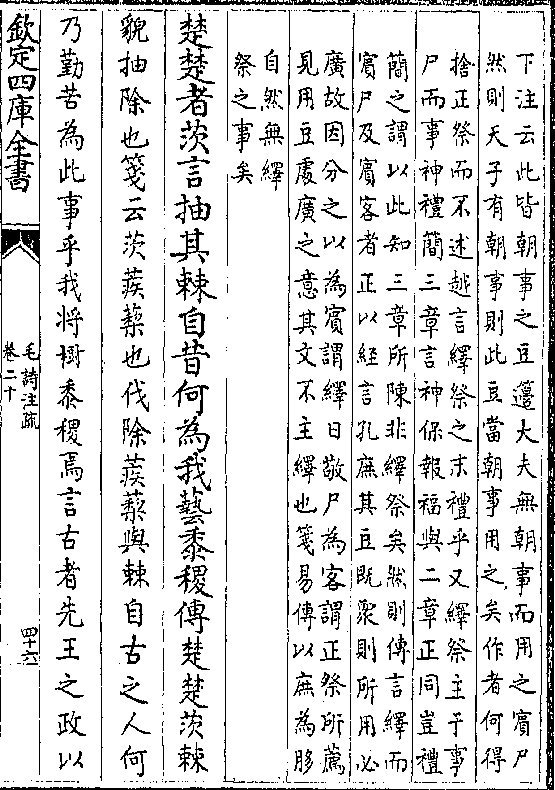 下注云此皆朝事之豆籩大夫無朝事而用之賓尸
然則天子有朝事則此豆當朝事用之矣作者何得
捨正祭而不述越言繹祭之末禮乎又繹祭主于事
尸而事神禮簡三章言神保報福與二章正同豈禮
簡之謂以此知三章所陳非繹祭矣然則傳言繹而
賓尸及賓客者正以經言孔庶其豆既衆則所用必
廣故因分之以為賓謂繹日敬尸為客謂正祭所薦
見用豆處廣之意其文不主繹也箋易傳以庶為䏧
自然無繹
祭之事矣
楚楚者茨言抽其棘自昔何為我藝黍稷傳楚楚茨棘
貌抽除也箋云茨蒺藜也伐除蒺藜與棘自古之人何
乃勤苦為此事乎我將樹黍稷焉言古者先王之政以
欽定四庫全書
毛詩注疏
卷二十
四十六